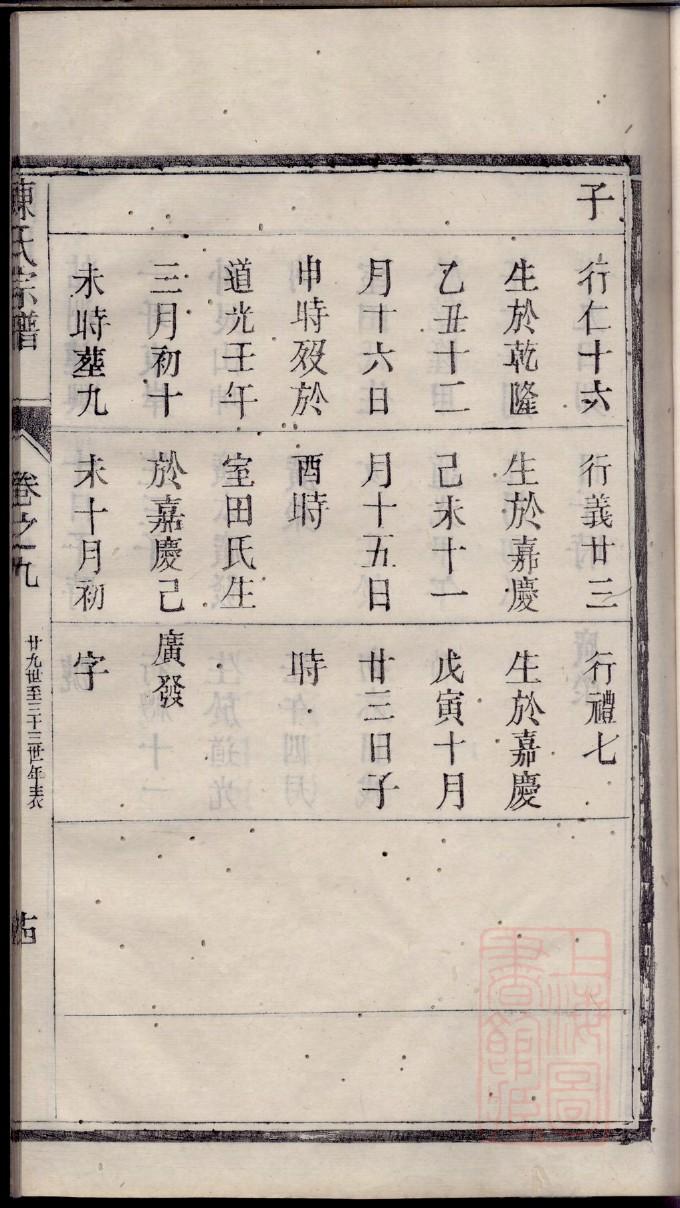 子
行仁十六
生於乾隆
乙丑十二
月十六日
申時歿於
道光壬午
三月初十
未時葬九
行義廿三
生於嘉慶
己未十一
月十五日
酉時
室田氏生
於嘉慶己
未十月初
行禮七
生於嘉慶
戊寅十月
廿三日子
時
廣發
字
陳氏宗譜
卷之九
廿九世至三十三世年表
上海圖書館藏